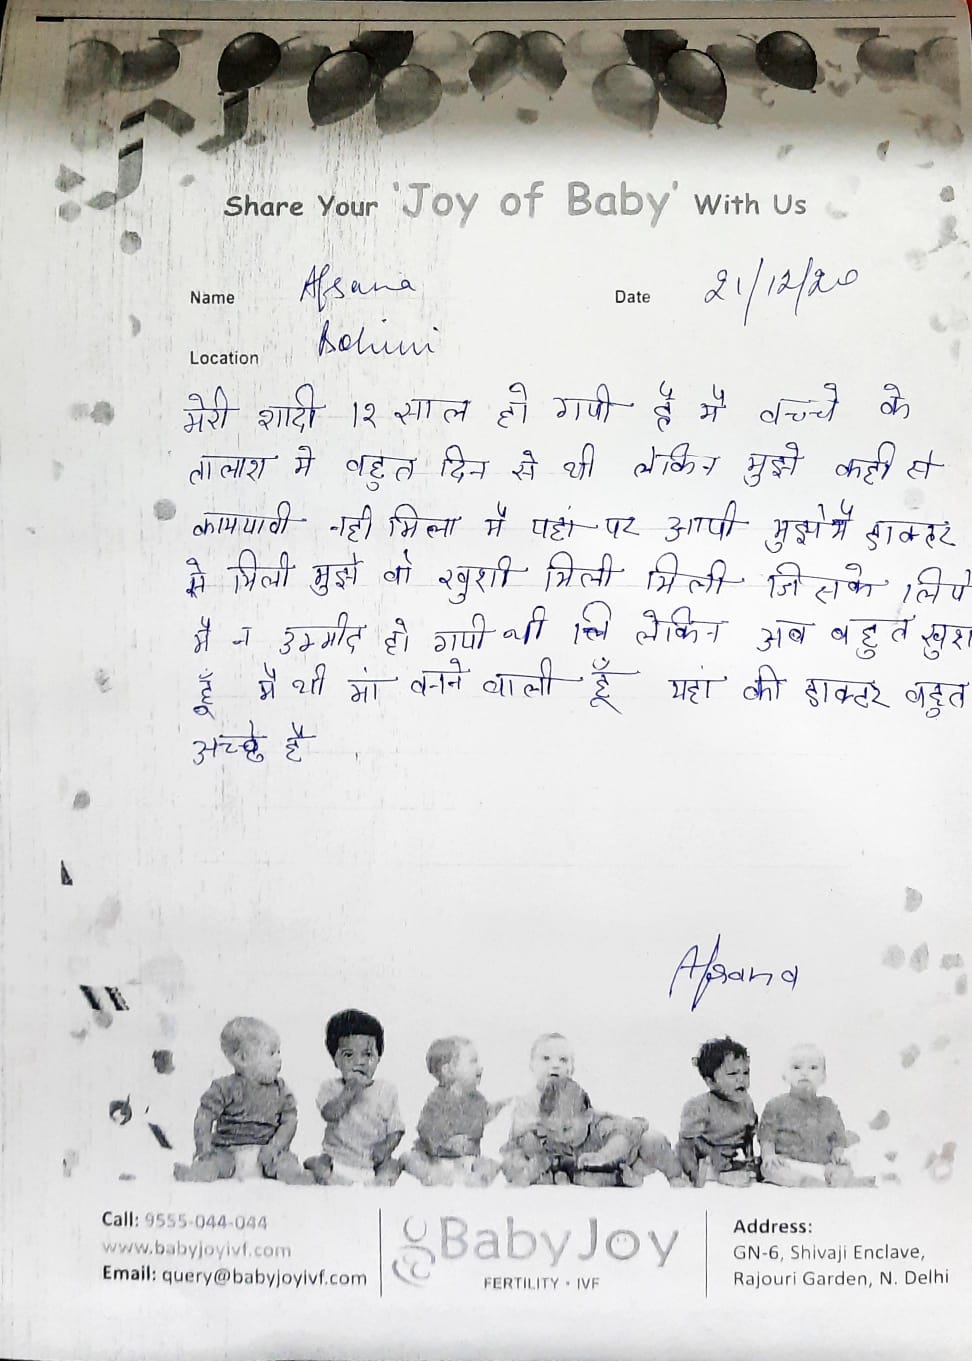 Share Your 'Joy of Baby' With Us
Name Afsana Date 21/12/20
Location Rohini
मेरी शादी 12 साल हो गयी है मै बच्चे के
तालाश मे बहुत दिन से थी लेकिन मुझे कही से
कामयाबी नही मिला मै यहां पर आयी मुझे मै डाक्टर
से मिली मुझे वो खुशी मिली मिली जिसके लिये
मै न उम्मीद हो गयी थी लेकिन अब बहुत खुश
हूँ मै भी मां बनने वाली हूँ यहां की डाक्टर बहुत
अच्छे है
Afsana
Call: 9555-044-044
www.babyjoyivf.com
Email: query@babyjoyivf.com
BabyJoy
FERTILITY · IVF
Address:
GN-6, Shivaji Enclave,
Rajouri Garden, N. Delhi